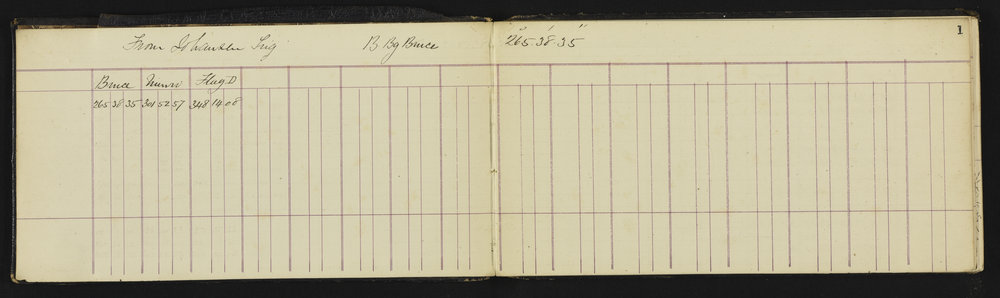 From Johansen Trig B. Bg Bruce 265° 38' 35"
1
Bruce Munro Flag D
265 38 35 301 52 57 348 14 08